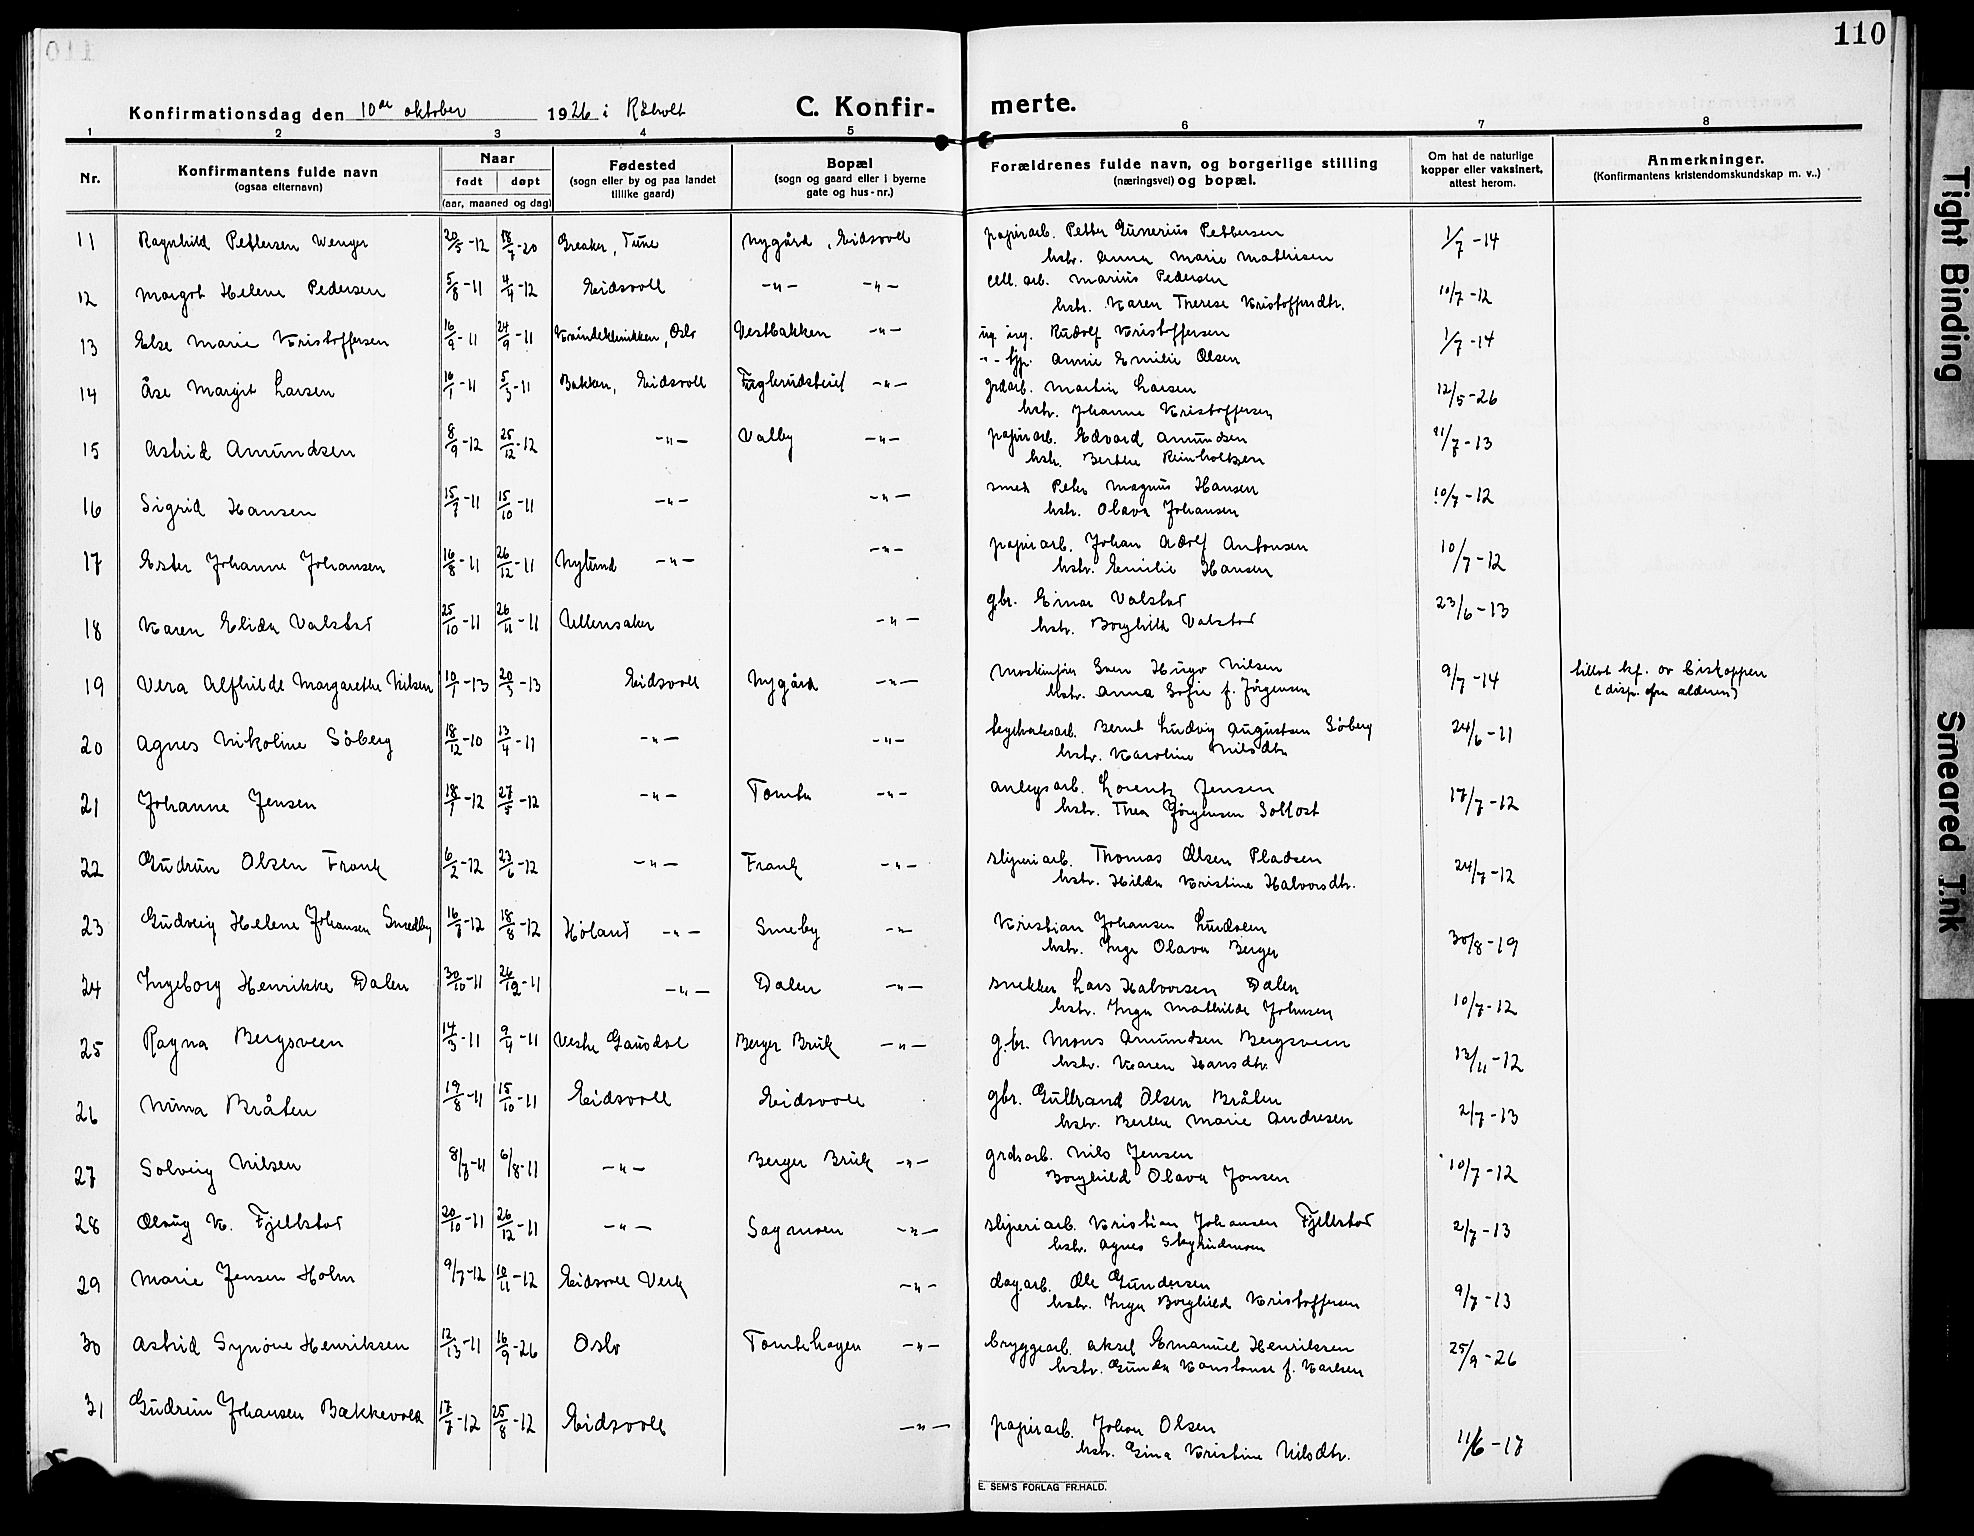 110
Konfirmationsdag den 10de oktober 1926 i Råholt C. Konfirmerte.
1 2 3 4 5 6 7 8
Nr. Konfirmantens fulde navn (ogsaa efternavn) Naar født døpt (aar, maaned og dag) Fødested (sogn eller by og paa landet tillike gaard) Bopæl (sogn og gaard eller i byerne gate og hus-nr.) Forældrenes fulde navn, og borgerlige stilling (næringsvei) og bopæl. Om hat de naturlige kopper eller vaksinert, attest herom. Anmerkninger. (Konfirmantens kristendomskundskap m. v..)
11 Ragnhild Pettersen Wenger 20/5-12 18/7-20 Greaker, Tune Nygård, Eidsvoll papirarb. Petter Gunerius Pettersen 1/7-14
hstr. Anna Marie Mathisen
12 Margot Helene Pedersen 5/8-11 4/4-12 Eidsvoll -"- -"- cell. arb. Marius Pedersen 10/7-12
hstr. Karen Therese Kristoffersdtr.
13 Else Marie Kristoffersen 16/9-11 24/9-11 Kvindeklinikken, Oslo Vestbakken -"- ug. ing. Rudolf Kristoffersen 1/7-14
-"- pp. Annie Emilie Olsen
14 Åse Margit Larsen 16/1-11 5/3-11 Bakken, Eidsvoll -"- grdarb. Martin Larsen 12/5-26
hstr. Johanne Kristoffersen
15 Astrid Amundsen 8/9-12 25/12-12 -"- Valby -"- papirarb. Edvard Amundsen 21/7-13
hstr. Berthe Reinholtsen
16 Sigrid Hansen 15/7-11 15/10-11 -"- -"- smed Peter Magnus Hansen 10/7-12
hstr. Olava Johansen
17 Ester Johanne Johansen 16/8-11 26/12-11 Nylund -"- -"- papirarb. Johan Adolf Antonsen 10/7-12
hstr. Emilie Hansen
18 Karen Elida Valstad 25/10-11 26/11-11 Ullensaker -"- gbr. Einar Valstad 23/6-13
hstr. Borghild Valstad
19 Vera Alfhilde Margarethe Nilsen 10/1-13 20/3-13 Eidsvoll Nygård -"- Maskinfører Sven Hugo Nilsen 9/7-14 tillat kf. av biskoppen
hstr. Anna Sofie f. Jørgensen (disp. fra alderen)
20 Agnes Nikoline Søberg 18/12-10 13/4-11 -"- -"- teglverksarb. Bernt Ludvig Augustsen Søberg 24/6-11
hstr. Karoline Nilsdtr.
21 Johanne Jensen 18/1-12 27/5-12 -"- Tomta -"- anlegsarb. Lorentz Jensen 17/7-12
hstr. Thea Jørgensen
22 Gudrun Olsen Frank 6/2-12 23/6-12 -"- Frank -"- sliperiarb. Thomas Olsen Pladsen 24/7-12
hstr. Hilda Kristine Halvorsdtr.
23 Gudveig Helene Johansen Smedby 16/7-12 18/8-12 Høland -"- Smeby -"- Kristian Johansen 30/8-19
hstr. Inga Olava Berger
24 Ingeborg Henrikke Dalen 30/10-11 26/12-11 -"- Dalen -"- snekker Lars Halvorsen Dalen 10/7-12
hstr. Inga Mathilde Johnsen
25 Ragna Bergsveen 14/3-11 9/4-11 Vestre Gausdal Berger Bruk -"- g.br. Mons Amundsen Bergsveen 13/11-12
hstr. Karen Hansdtr.
26 Nuna Bråten 19/8-11 15/10-11 Eidsvoll Eidsvoll gbr. Gulbrand Olsen Bråten 2/7-13
hstr. Berthe Marie Andresen
27 Solveig Nilsen 8/7-11 6/8-11 -"- Berger Bruk -"- grdsarb. Nils Jensen 10/7-12
Borghild Olava Jonsen
28 Olaug K. Fjellstad 20/10-11 26/12-11 -"- Sagmoen -"- sliperiarb. Kristian Johansen Fjellstad 2/7-13
hstr. Agnes Skyrudmoen
29 Marie Jensen Holm 9/7-12 10/11-12 Eidsvoll Verk -"- dag.arb. Ole Gundersen 9/7-13
hstr. Inga Borghild Kristoffersen
30 Astrid Synøve Henriksen 12/13-11 16/9-26 Oslo Tomtehagen -"- bryggearb. Aksel Emanuel Henriksen 25/9-26
hstr. Gunda Konstanse f. Karlsen
31 Gudrun Johansen Bækkevold 17/7-12 25/8-12 Eidsvoll -"- papirarb. Johan Olsen 11/6-17
hstr. Gina Kristine Nilsdtr.
E. SEM'S FORLAG FR.HALD.
Tight Binding
Smeared Ink